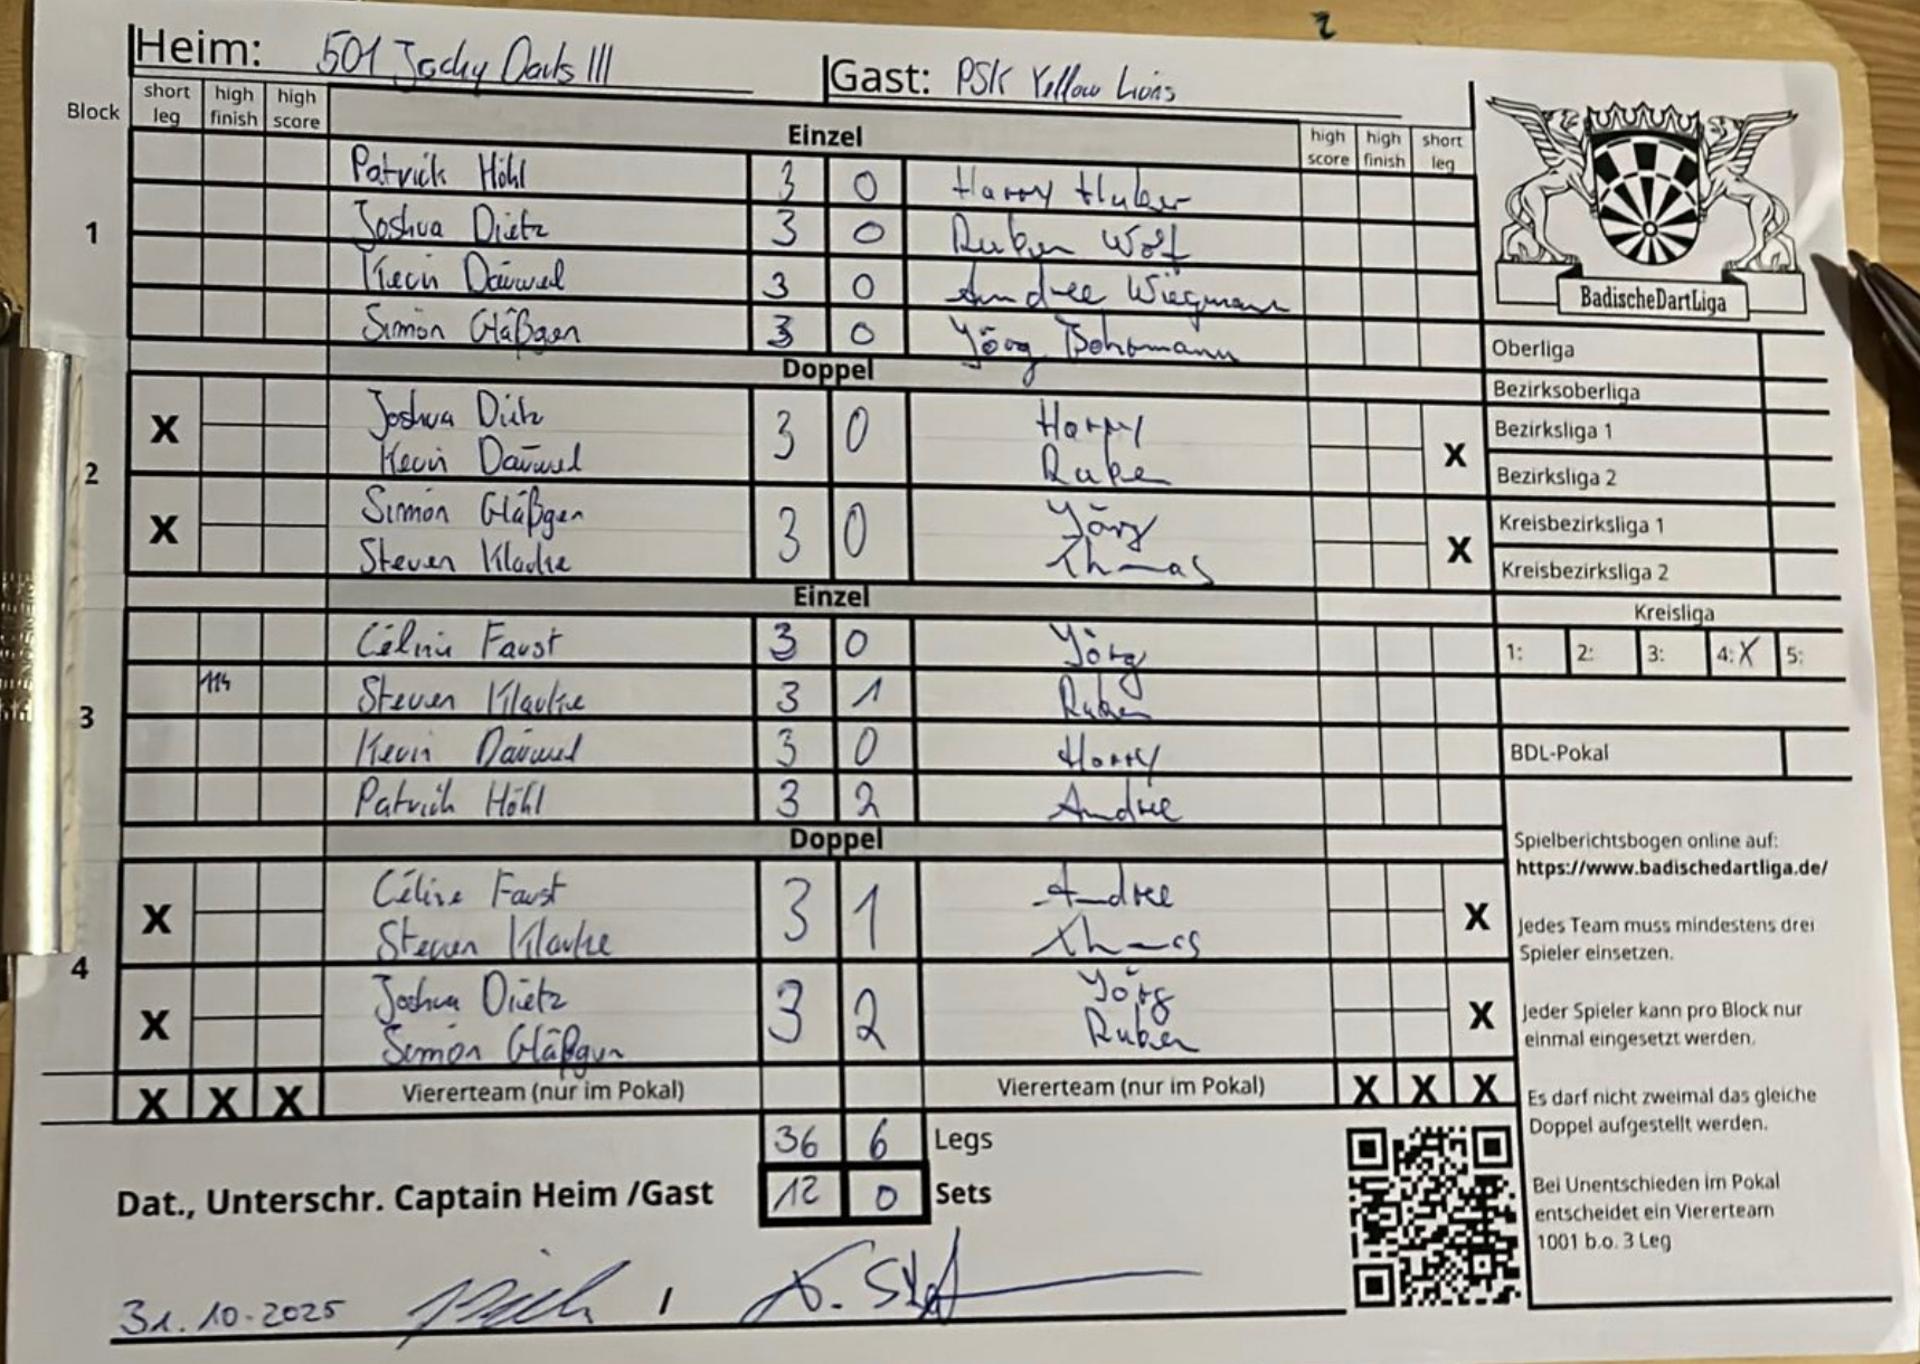 Heim: 501 Jocky Darts III Gast: PSK Yellow Lions
Block short leg high finish high score Einzel high score high finish short leg
1
Patrick Höhl 3 0 Harry Huber
Joshua Dietz 3 0 Ruben Wolf
Kevin Däuwel 3 0 Andree Wiegmann
Simon Gläßgen 3 0 Jörg
BadischeDartLiga
Doppel
2
X Joshua Dietz 3 0 Harry X
Kevin Däuwel Ruben
X Simon Gläßgen 3 0 Jörg X
Steven Klauke Thomas
Einzel
3
Céline Faust 3 0 Jörg
114 Steven Klauke 3 1 Ruben
Kevin Däuwel 3 0 Harry
Patrick Höhl 3 2 Andree
Doppel
4
X Céline Faust 3 1 Andree X
Steven Klauke Thomas
X Joshua Dietz 3 2 Jörg X
Simon Gläßgen Ruben
X X X Viererteam (nur im Pokal) Viererteam (nur im Pokal) X X X
36 6 Legs
Dat., Unterschr. Captain Heim /Gast 12 0 Sets
31.10.2025 /
Oberliga
Bezirksoberliga
Bezirksliga 1
Bezirksliga 2
Kreisbezirksliga 1
Kreisbezirksliga 2
Kreisliga
1: 2: 3: 4: X 5:
BDL-Pokal
Spielberichtsbogen online auf:
https://www.badischedartliga.de/
Jedes Team muss mindestens drei
Spieler einsetzen.
Jeder Spieler kann pro Block nur
einmal eingesetzt werden.
Es darf nicht zweimal das gleiche
Doppel aufgestellt werden.
Bei Unentschieden im Pokal
entscheidet ein Viererteam
1001 b.o. 3 Leg